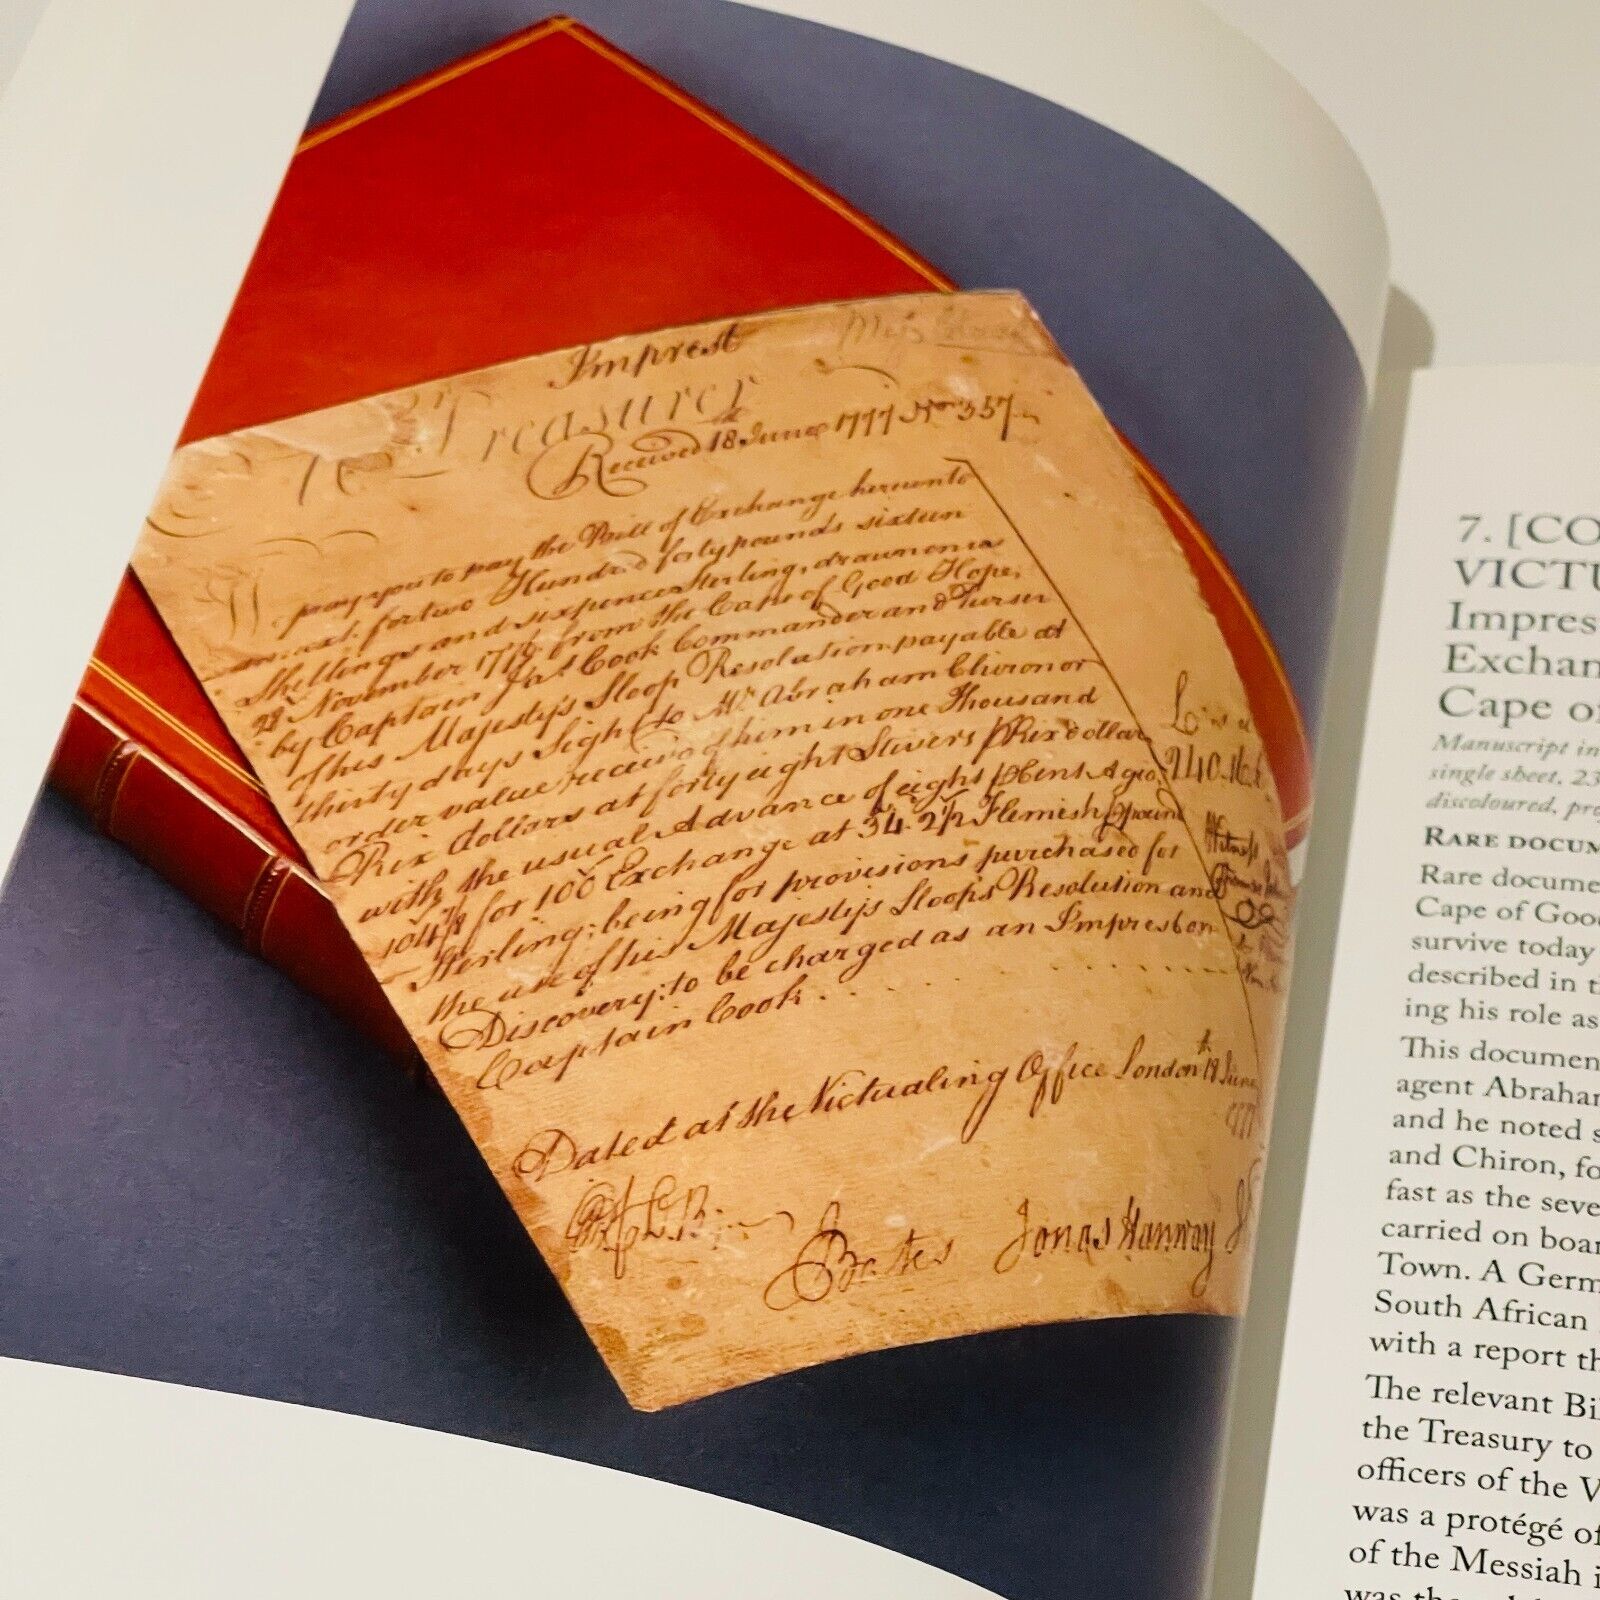 Imprest
Treasurer
Received 18 June 1777 No 357
We pray you to pay the Bill of Exchange hereunto
annext for two Hundred forty pounds sixteen
Shillings and sixpence Sterling, drawn on us
28 November 1776 from the Cape of Good Hope,
by Captain Jas Cook Commander and Purser
of his Majesty's Sloop Resolution payable at
thirty days Sight to Mr Abraham Chiron or
order value received of him in one Thousand
Rix dollars at forty eight Stivers Rix dollar
with the usual Advance of eight Cent Agio
104 for 100 Exchange at 34.2 Flemish pound
Sterling; being for provisions purchased for
the use of his Majesty's Sloops Resolution and
Discovery; to be charged as an Imprest on
Captain Cook . . . . . . . . . . . . . . . .
240.16.6
Witness
Dated at the Victualing Office London 18th June
1777
Bates Jonas Hanway
7. [CO
VICTU
Impres
Exchan
Cape o
Manuscript in
single sheet, 23
discoloured, pr
RARE DOCUM
Rare docume
Cape of Goo
survive today
described in t
ing his role as
This documen
agent Abrahar
and he noted s
and Chiron, fo
fast as the seve
carried on boar
Town. A Germ
South African
with a report th
The relevant Bi
the Treasury to
officers of the V
was a protégé of
of the Messiah i